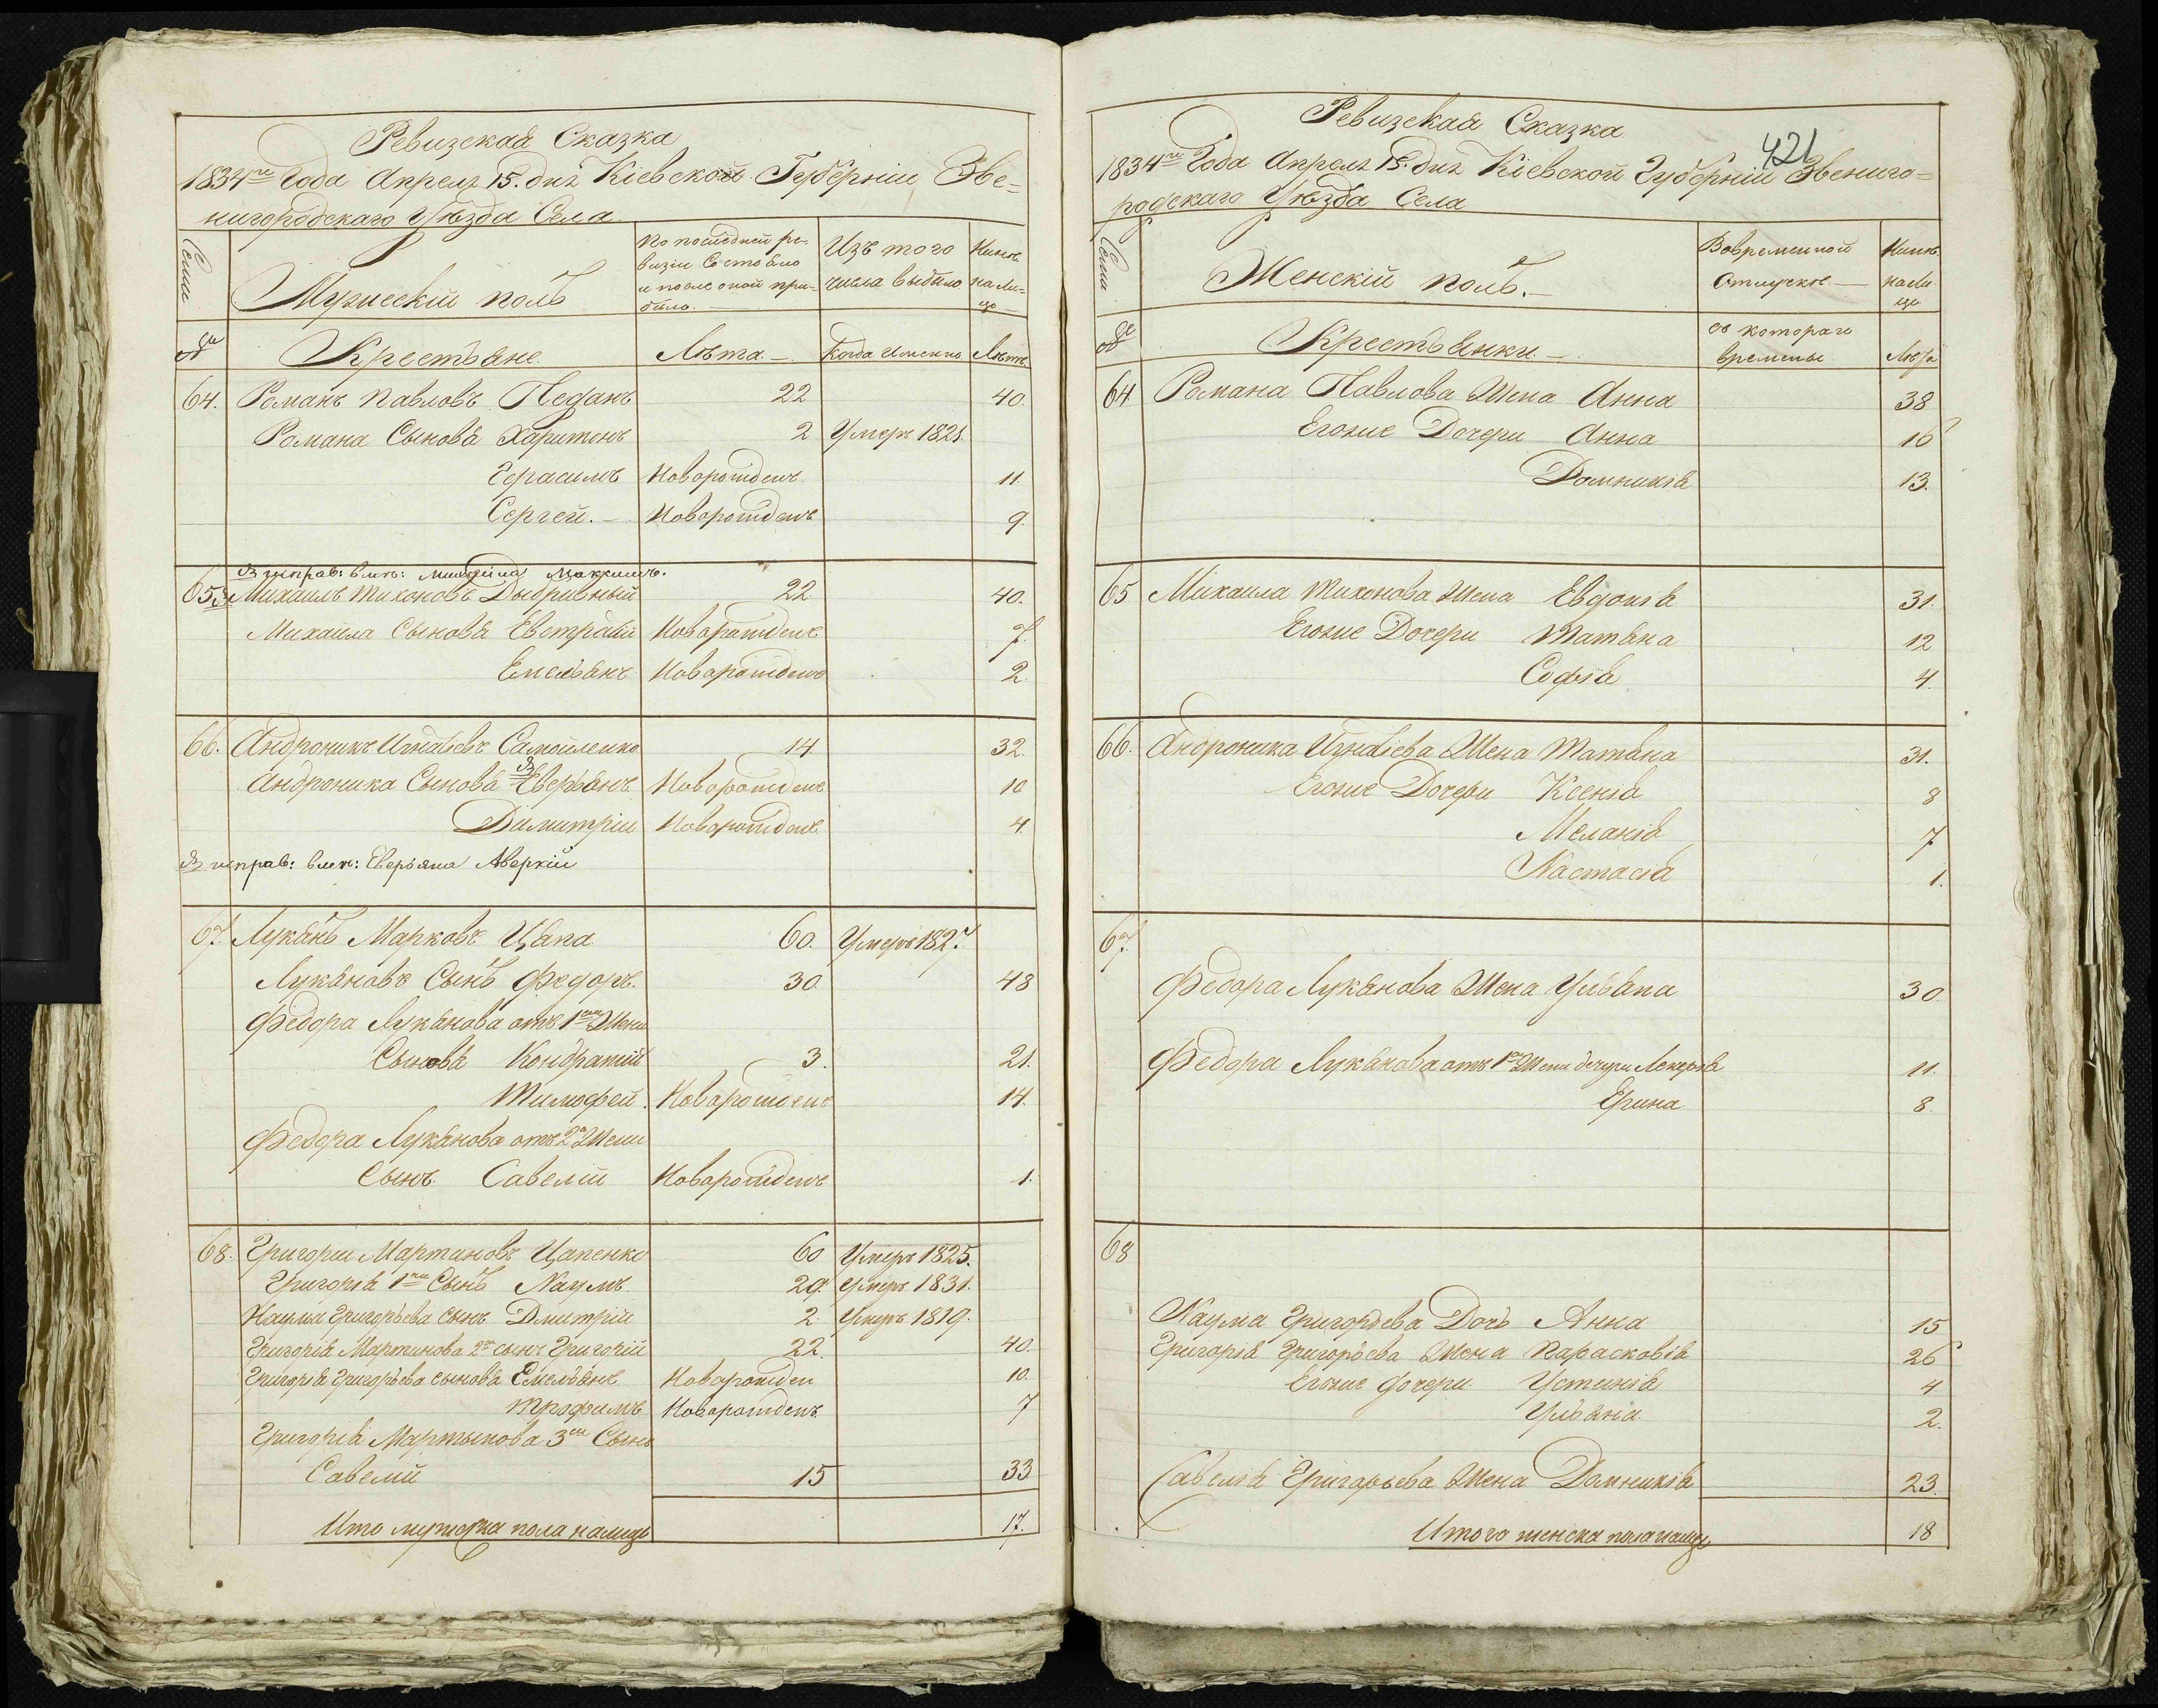 Ревизская Сказка
1834го Года Апреля 15. дня Кіевской Губерніи Зве=
нигородскаго Уѣзда Села
Семьи
Мужескій полъ
По последней ре-
визіи Состояло
и после оной при-
было.
Изъ того
числа выбыло
Нынѣ
нали=
цо
№
Крестьяне
Лѣта.
Когда именно
Лѣта.
64. Романъ Павловъ Педанъ 22 40.
Романа Сыновья Харитонъ 2 Умеръ 1821
Герасимъ Новорожденъ 11.
Сергей. Новорожденъ 9.
исправ: вмѣ: Михаила Максимъ.
65 Михаилъ Тихоновъ Дыбривный 22 40.
Михаила Сыновья Евстратій Новорожденъ 7.
Емельянъ Новорожденъ 2.
66. Андроникъ Игнатіевъ Самойленко 14 32.
Андроника Сыновья Еверьянъ Новорожденъ 10
Димитрій Новорожденъ 4.
исправ: вмѣ: Еверьяна Аверкій
67. Лукянъ Марковъ Цапа 60. Умеръ 1827
Лукяновъ Сынъ Федоръ. 30. 48
Федора Лукянова отъ 1ой Жены
Сыновья Кондратій 3. 21.
Тимофей Новорожденъ 14.
Федора Лукянова отъ 2й Жены
Сынъ Савелій Новорожденъ 1.
68. Григорій Мартиновъ Цапенко 60 Умеръ 1825.
Григорія 1й Сынъ Наумъ 29. Умеръ 1831.
Наума Григорьева сынъ Дмитрій 2. Умеръ 1819.
Григорія Мартинова 2й сынъ Григорій 22. 40.
Григорія Григорьева сыновья Емельянъ Новорожден 10.
Трофимъ Новорожденъ. 7
Григорія Мартынова 3й Сынъ
Савелій 15 33
Ито мужеска пола налицо 17.
421
Ревизская Сказка
1834го Года Апреля 15. дня Кіевской Губерніи Звениго=
родскаго Уѣзда Села
Семьи
Женскій полъ.
Вовременной
Отлучкѣ.
Нынѣ
нали
цо
№
Крестьянки
съ котораго
времены
Лѣта
64 Романа Павлова Жена Анна 38
Егоже Дочери Анна 16
Домникія 13.
65 Михаила Тихонова Жена Евдокія 31.
Егоже Дочери Татяна 12
Софія 4.
66. Андроника Игнатіева Жена Татяна 31.
Егоже Дочери Ксенія 8
Меланія 7
Настасія 1.
67.
Федора Лукянова Жена Ульяна 30
Федора Лукянова отъ 1й Жены дочери Лекерія 11.
Ерина 8.
68
Наума Григорьева Дочь Анна 15
Григорія Григорьева Жена Парасковія 26
Егоже дочери Устинія 4
Ульяна 2.
Савелія Григорьева Жена Домникія 23.
Итого женска пола налицо 18